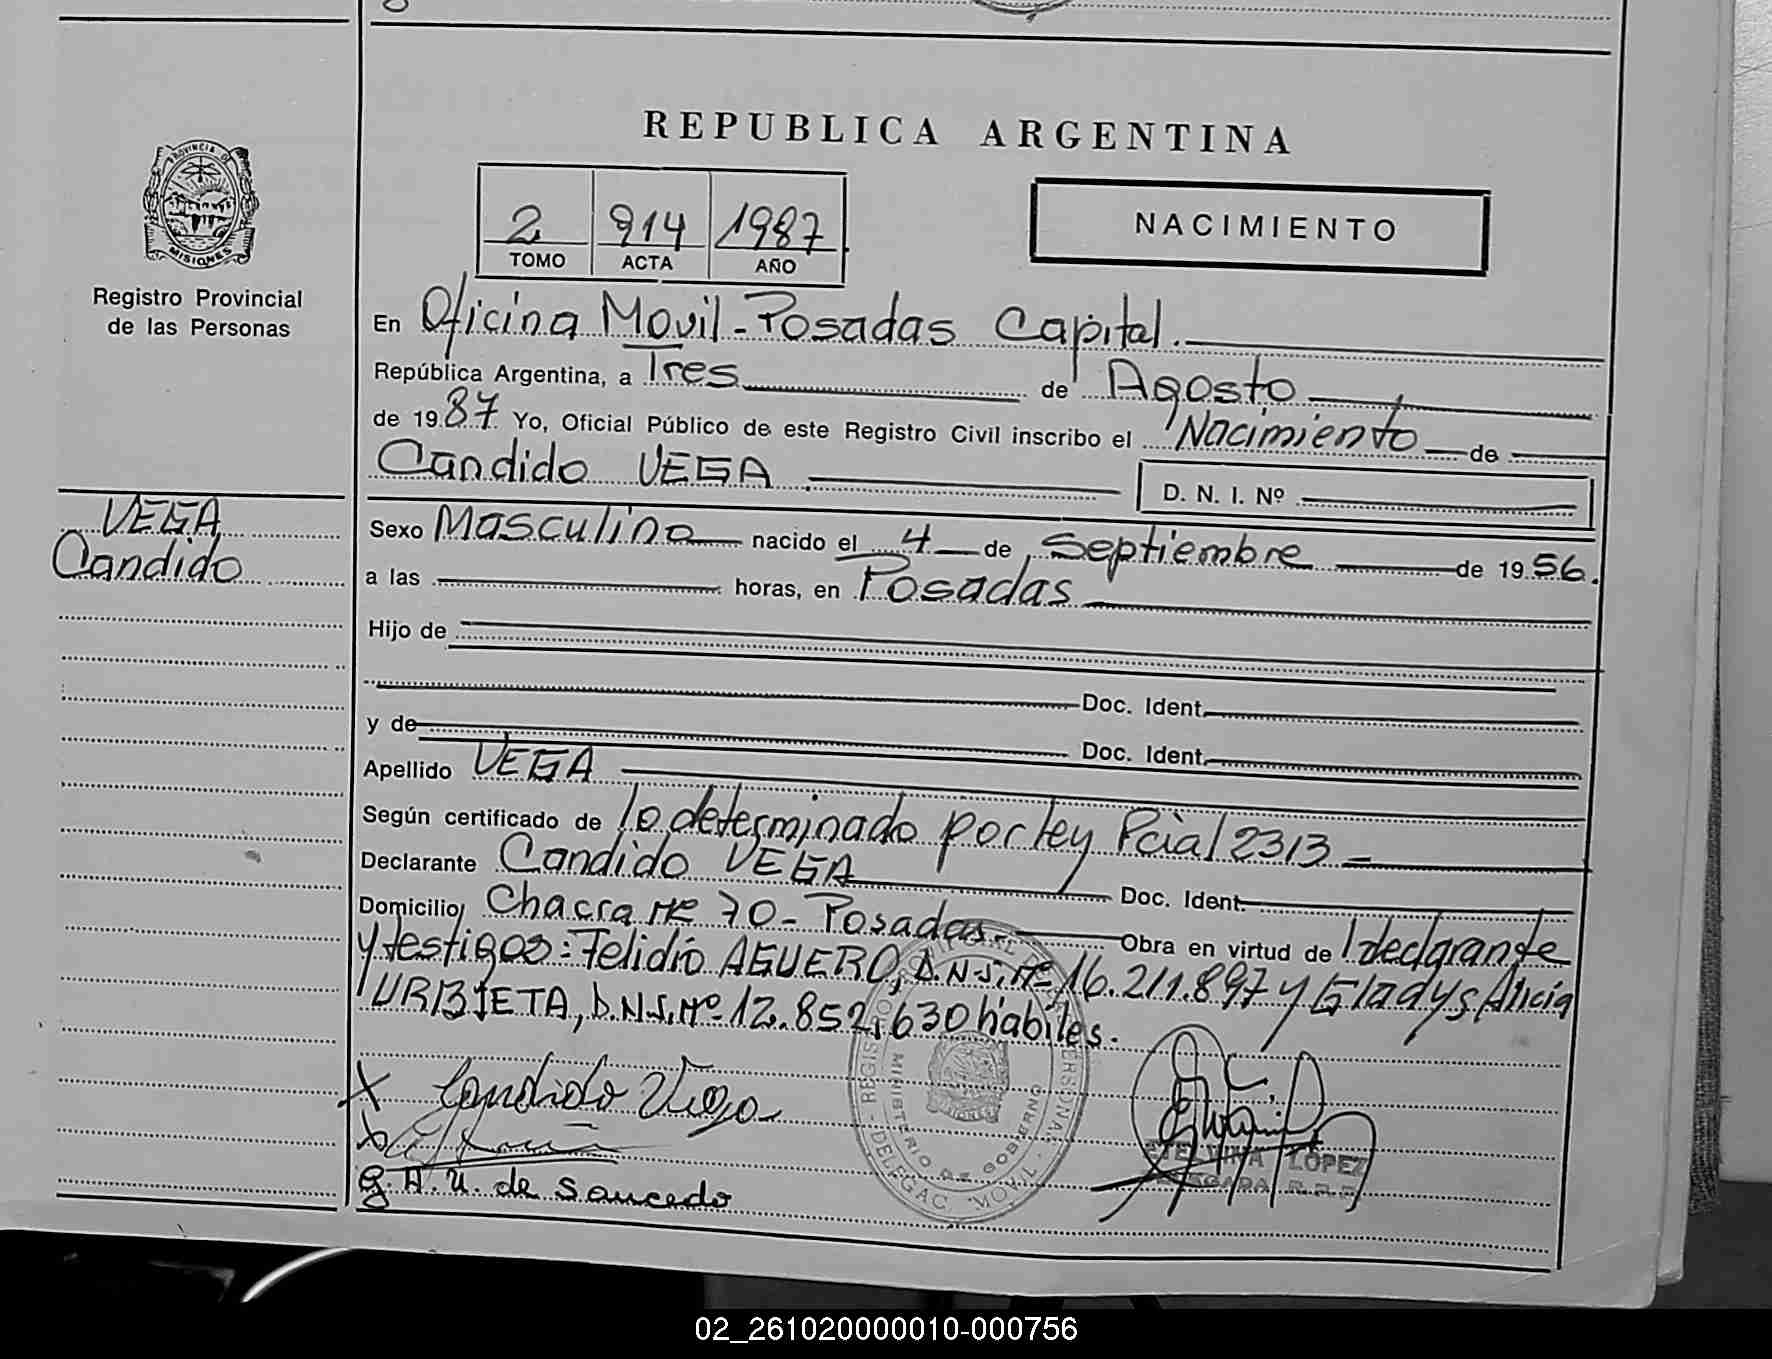 REPUBLICA ARGENTINA
PROVINCIA DE
MISIONES
Registro Provincial
de las Personas
2 914 1987
TOMO ACTA AÑO
NACIMIENTO
En Oficina Movil - Posadas Capital.
República Argentina, a Tres de Agosto
de 1987 Yo, Oficial Público de este Registro Civil inscribo el Nacimiento de
Candido VEGA D. N. I. Nº
VEGA
Candido
Sexo Masculino nacido el 4 de Septiembre de 1956.
a las horas, en Posadas
Hijo de
Doc. Ident.
y de Doc. Ident.
Apellido VEGA
Según certificado de lo determinado por ley Pcial 2313
Declarante Candido VEGA Doc. Ident.
Domicilio Chacra Nº 70 - Posadas Obra en virtud de 1 declarante
y testigos: Felidio AGUERO, D.N.I. Nº 16.211.897 y Gladys Alicia
URBIETA, D.N.I. Nº 12.852.630 hábiles.
X Candido Vega
G. A. U. de Saucedo
MINISTERIO DE GOBIERNO
LOPEZ
02_261020000010-000756